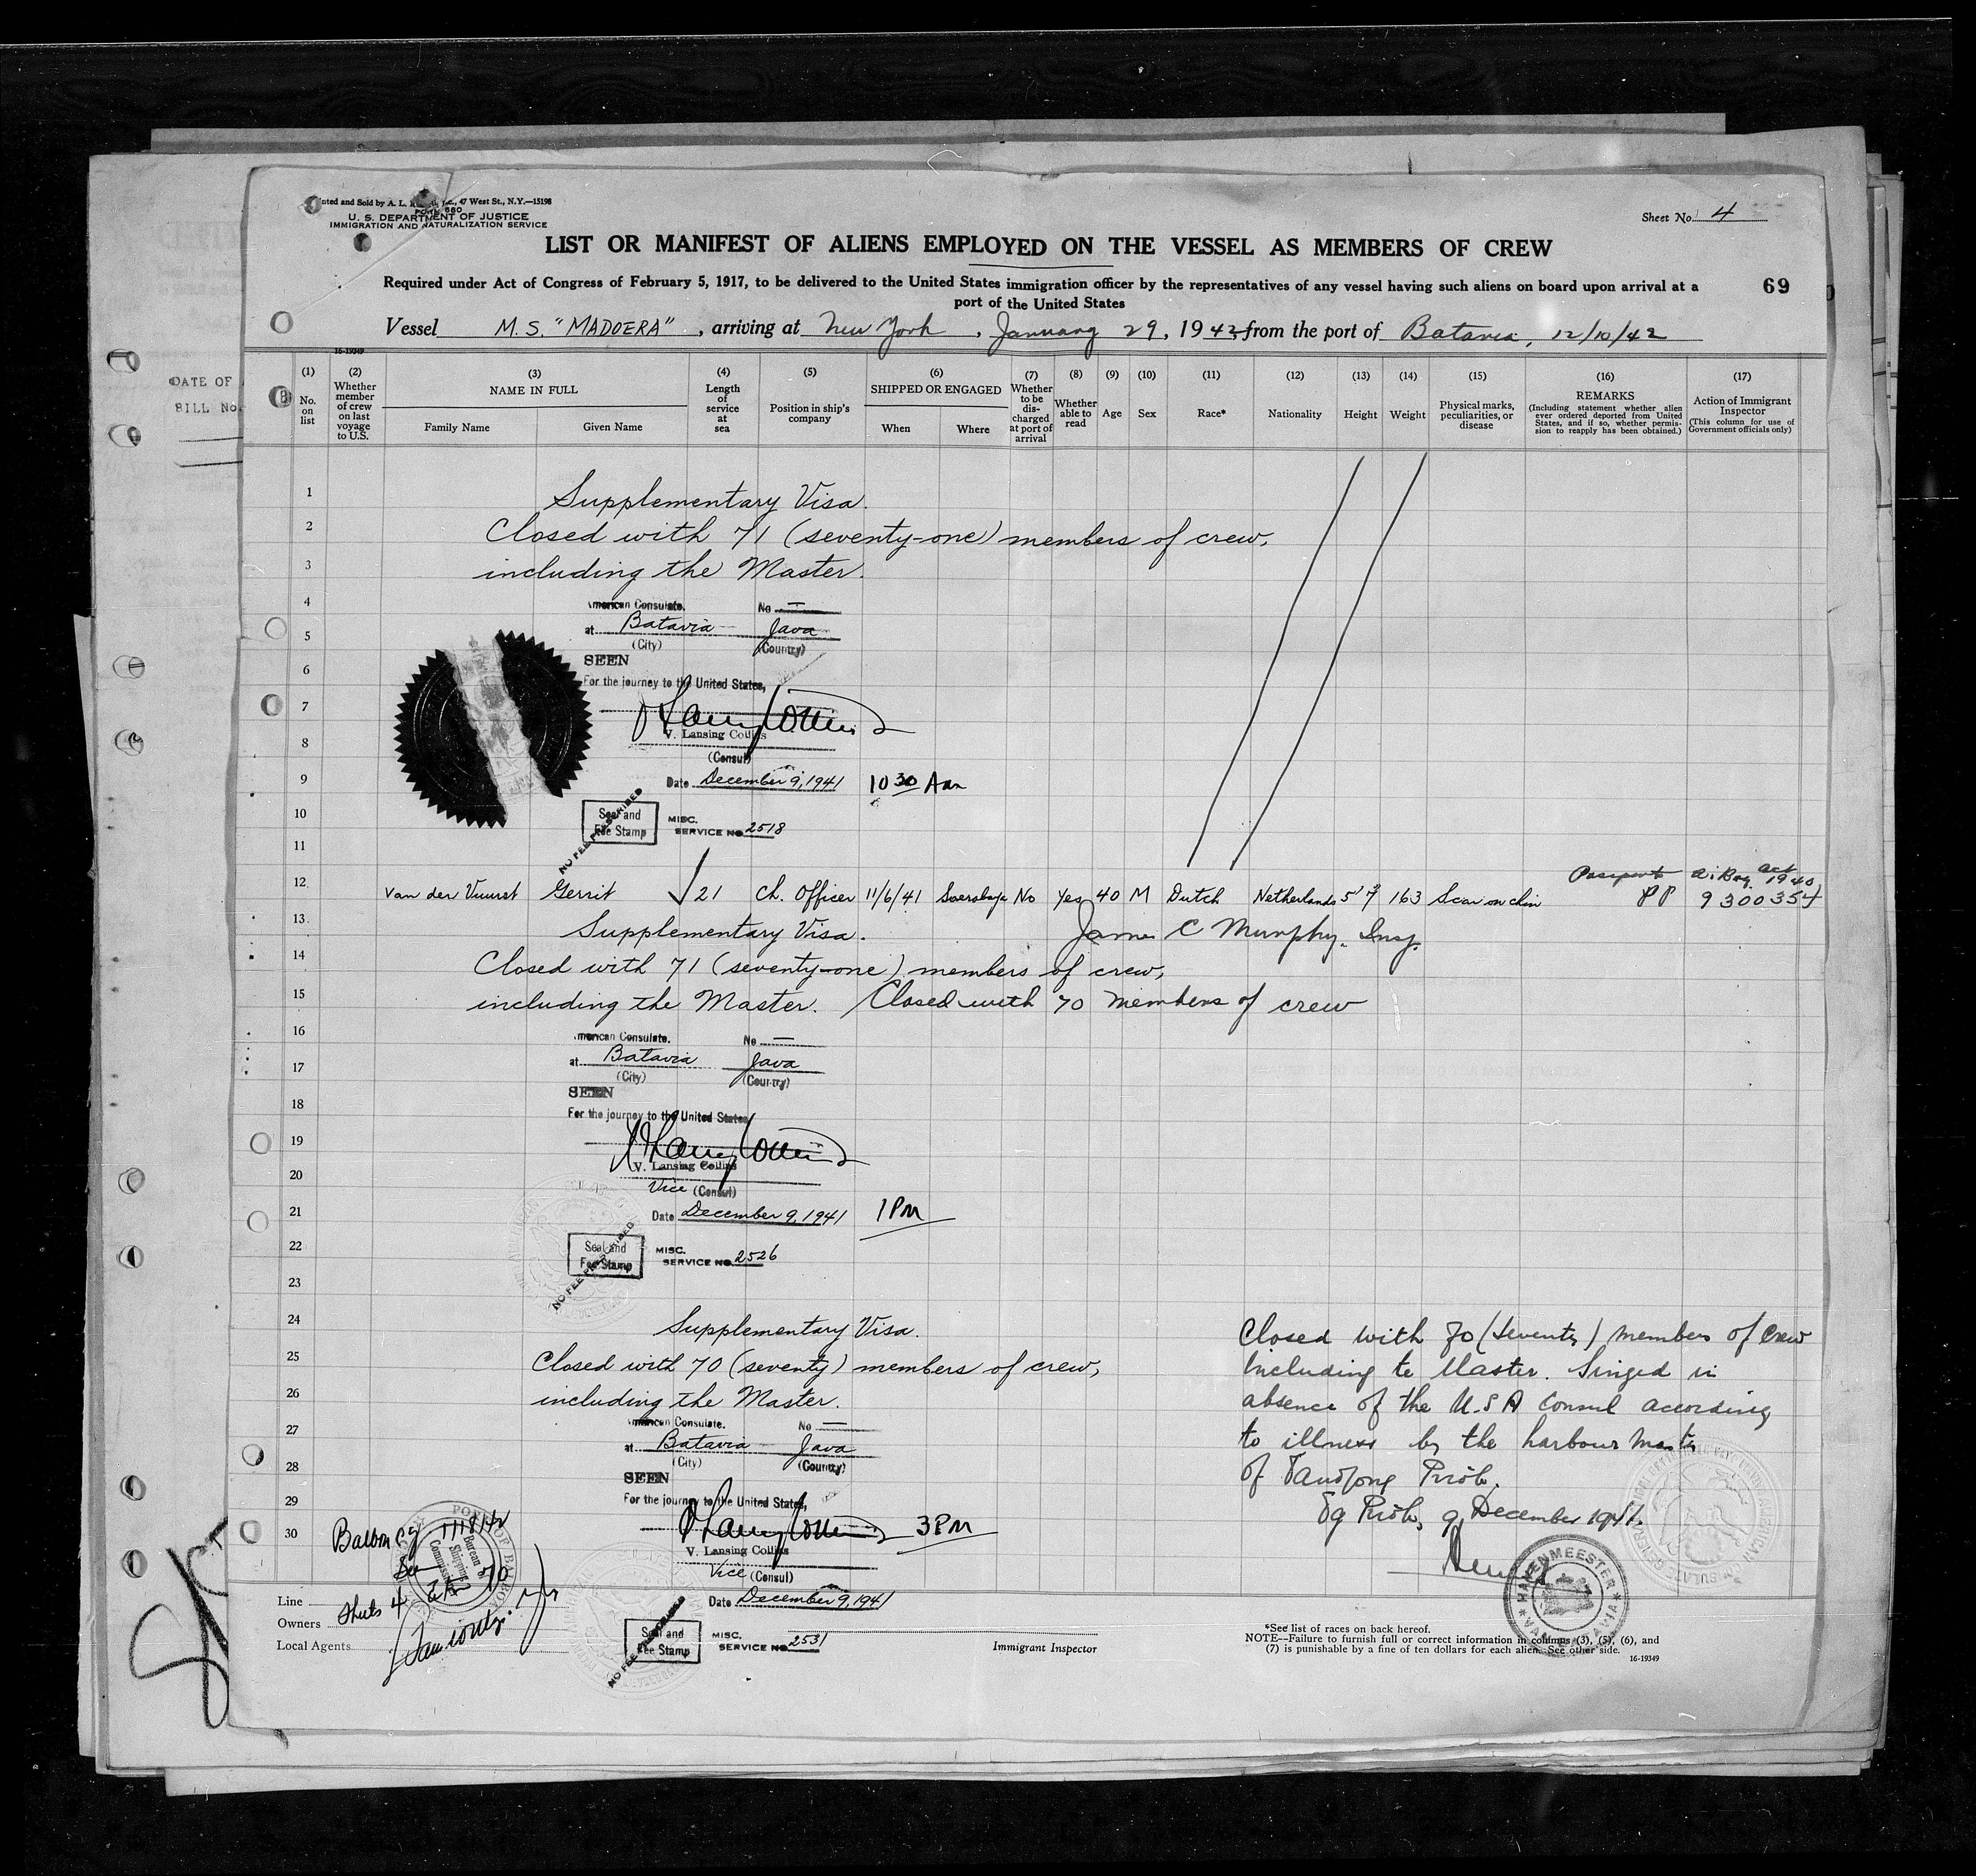 nted and Sold by A. L. 47 West St., N.Y.—15198
FORM 680
U. S. DEPARTMENT OF JUSTICE
IMMIGRATION AND NATURALIZATION SERVICE
Sheet No. 4
LIST OR MANIFEST OF ALIENS EMPLOYED ON THE VESSEL AS MEMBERS OF CREW
Required under Act of Congress of February 5, 1917, to be delivered to the United States immigration officer by the representatives of any vessel having such aliens on board upon arrival at a
port of the United States
69
Vessel M.S. "MADOERA", arriving at New York, January 29, 1942, from the port of Batavia, 12/10/42
16-19349
DATE OF
BILL No.
(1) No. on list
(2) Whether member of crew on last voyage to U.S.
(3) NAME IN FULL
Family Name Given Name
(4) Length of service at sea
(5) Position in ship's company
(6) SHIPPED OR ENGAGED
When Where
(7) Whether to be dis-charged at port of arrival
(8) Whether able to read
(9) Age
(10) Sex
(11) Race*
(12) Nationality
(13) Height
(14) Weight
(15) Physical marks, peculiarities, or disease
(16) REMARKS
(Including statement whether alien ever ordered deported from United States, and if so, whether permis-sion to reapply has been obtained.)
(17) Action of Immigrant Inspector
(This column for use of Government officials only)
1 Supplementary Visa.
2 Closed with 71 (seventy-one) members of crew,
3 including the Master.
4 American Consulate. No —
5 at Batavia Java
(City) (Country)
6 SEEN
For the journey to the United States,
7
8 V. Lansing Collins
(Consul)
9 Date December 9, 1941 10 30 Am
10 Seal and Fee Stamp
NO FEE PRESCRIBED
MISC. SERVICE NO. 2518
11
Passport Act 1940
12 van der Vuurst Gerrit 21 Ch. Officer 11/6/41 Soerabaja No Yes 40 M Dutch Netherlands 5'7 163 Scar on chin PP 9300354
13 Supplementary Visa. James C Murphy. Insp.
14 Closed with 71 (seventy-one) members of crew,
15 including the Master. Closed with 70 members of crew
16 American Consulate. No —
17 at Batavia Java
(City) (Country)
SEEN
18 For the journey to the United States
19
20 V. Lansing Collins
Vice (Consul)
21 Date December 9, 1941 1 PM
22 Seal and Fee Stamp
NO FEE PRESCRIBED
MISC. SERVICE NO. 2526
23
24 Supplementary Visa.
25 Closed with 70 (seventy) members of crew,
26 including the Master.
American Consulate. No —
27 at Batavia Java
(City) (Country)
28 SEEN
29 For the journey to the United States,
30 3 PM
V. Lansing Collins
Vice (Consul)
Date December 9, 1941
Seal and Fee Stamp
NO FEE PRESCRIBED
MISC. SERVICE NO. 2531
Closed with 70 (seventy) members of Crew
including te Master. Singed in
absence of the U.S A Consul according
to illness by the harbour master
of Tandjong Priok.
Tg Priok, 9 December 1941.
HAVENMEESTER
VAN BATAVIA
Balboa CZ 1/18/42
PORT OF BALBOA
Bureau Shipping Commissioner
Line
Owners
Sheets 4
70
Local Agents
Immigrant Inspector
*See list of races on back hereof.
NOTE—Failure to furnish full or correct information in columns (3), (5), (6), and
(7) is punishable by a fine of ten dollars for each alien. See other side.
16-19349